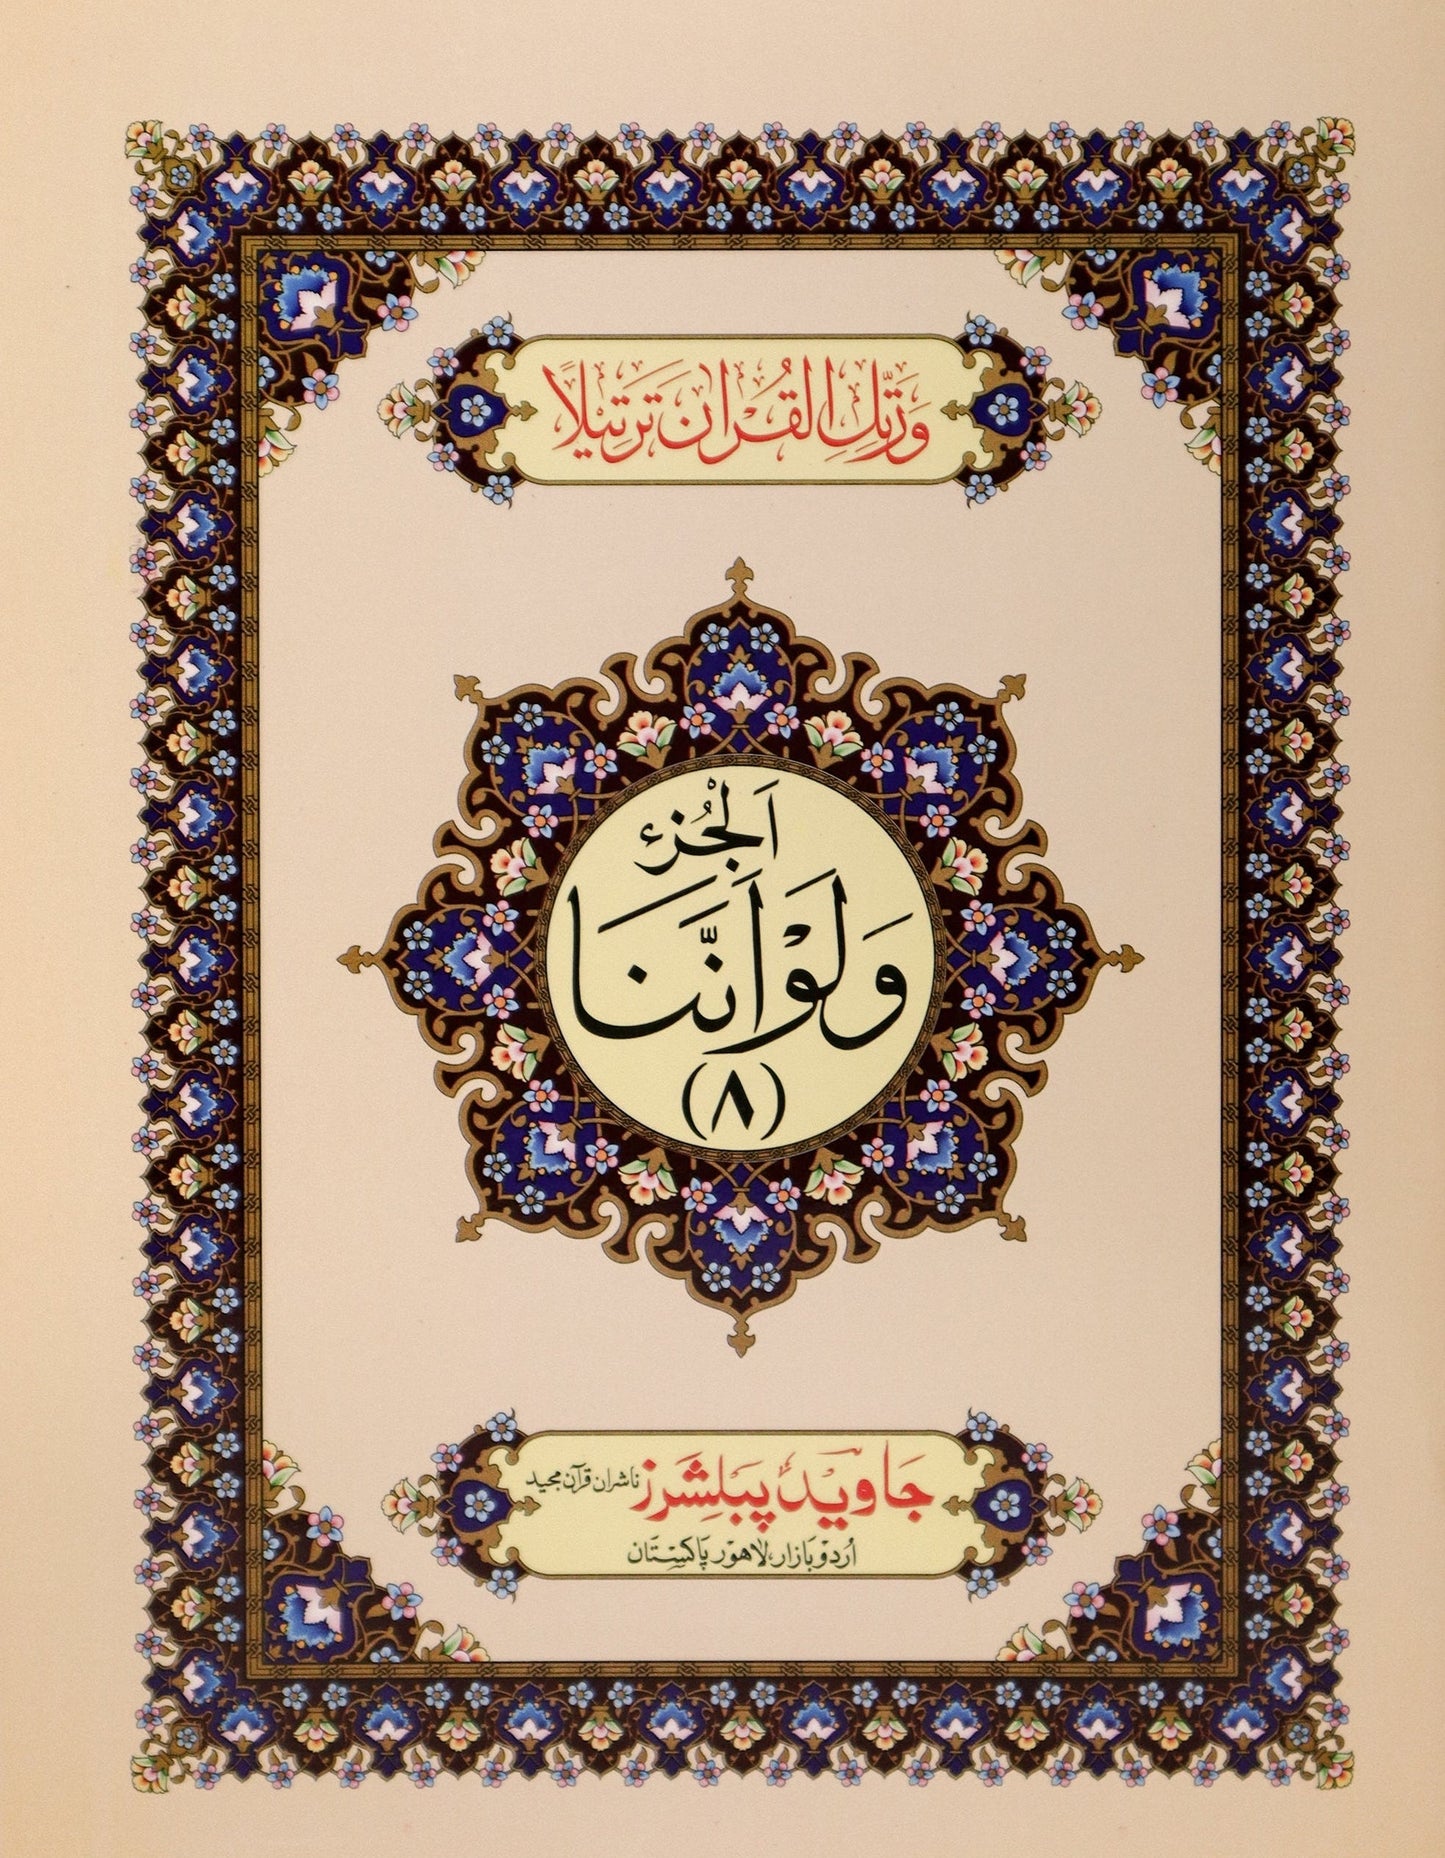 وَرَتِّلِ الْقُرْاٰنَ تَرْتِيْلًا
اَلْجُزْءُ
وَلَوْ اَنَّنَا
(٨)
جَاوید پَبلِشَرز ناشران قرآن مجید
اُردو بازار، لاہور پاکستان